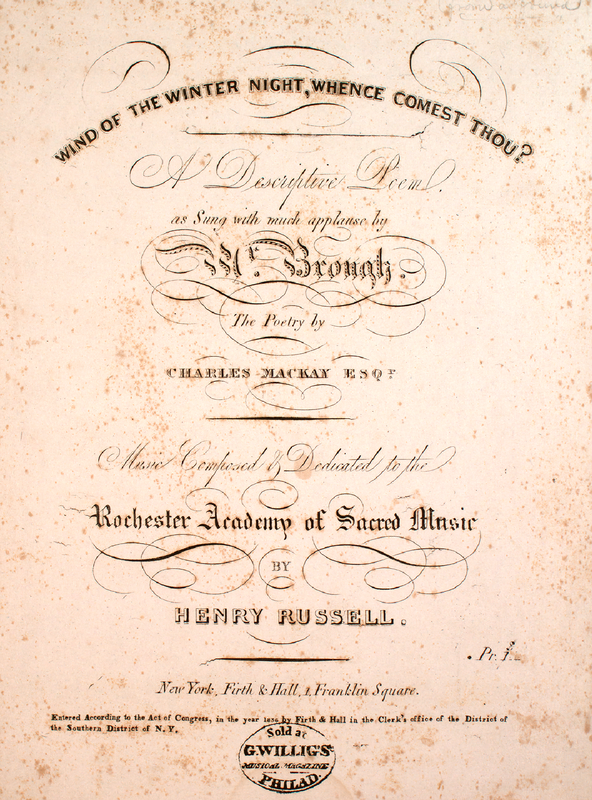 WIND OF THE WINTER NIGHT, WHENCE COMEST THOU?
A Descriptive Poem.
as Sung with much applause by
Mr. Brough.
The Poetry by
CHARLES MACKAY ESQr
Music Composed & Dedicated to the
Rochester Academy of Sacred Music
BY
HENRY RUSSELL.
Pr. 1
New York, Firth & Hall, 1, Franklin Square.
Entered According to the Act of Congress, in the year by Firth & Hall in the Clerk's office of the District of
the Southern District of N.Y.
Sold at
G. WILLIG'S
MUSICAL MAGAZINE
PHILAD.